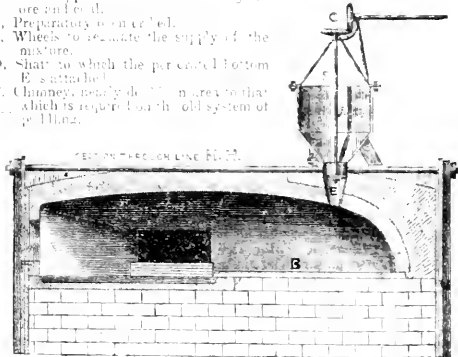 ore and coal.
Preparatory oven or bed.
Wheels to regulate the supply of the
mixture.
Shaft to which the perforated bottom
E is attached.
Chimney, nearly double in area to that
which is required on the old system of
C
SECTION THROUGH LINE H.H.
E
B